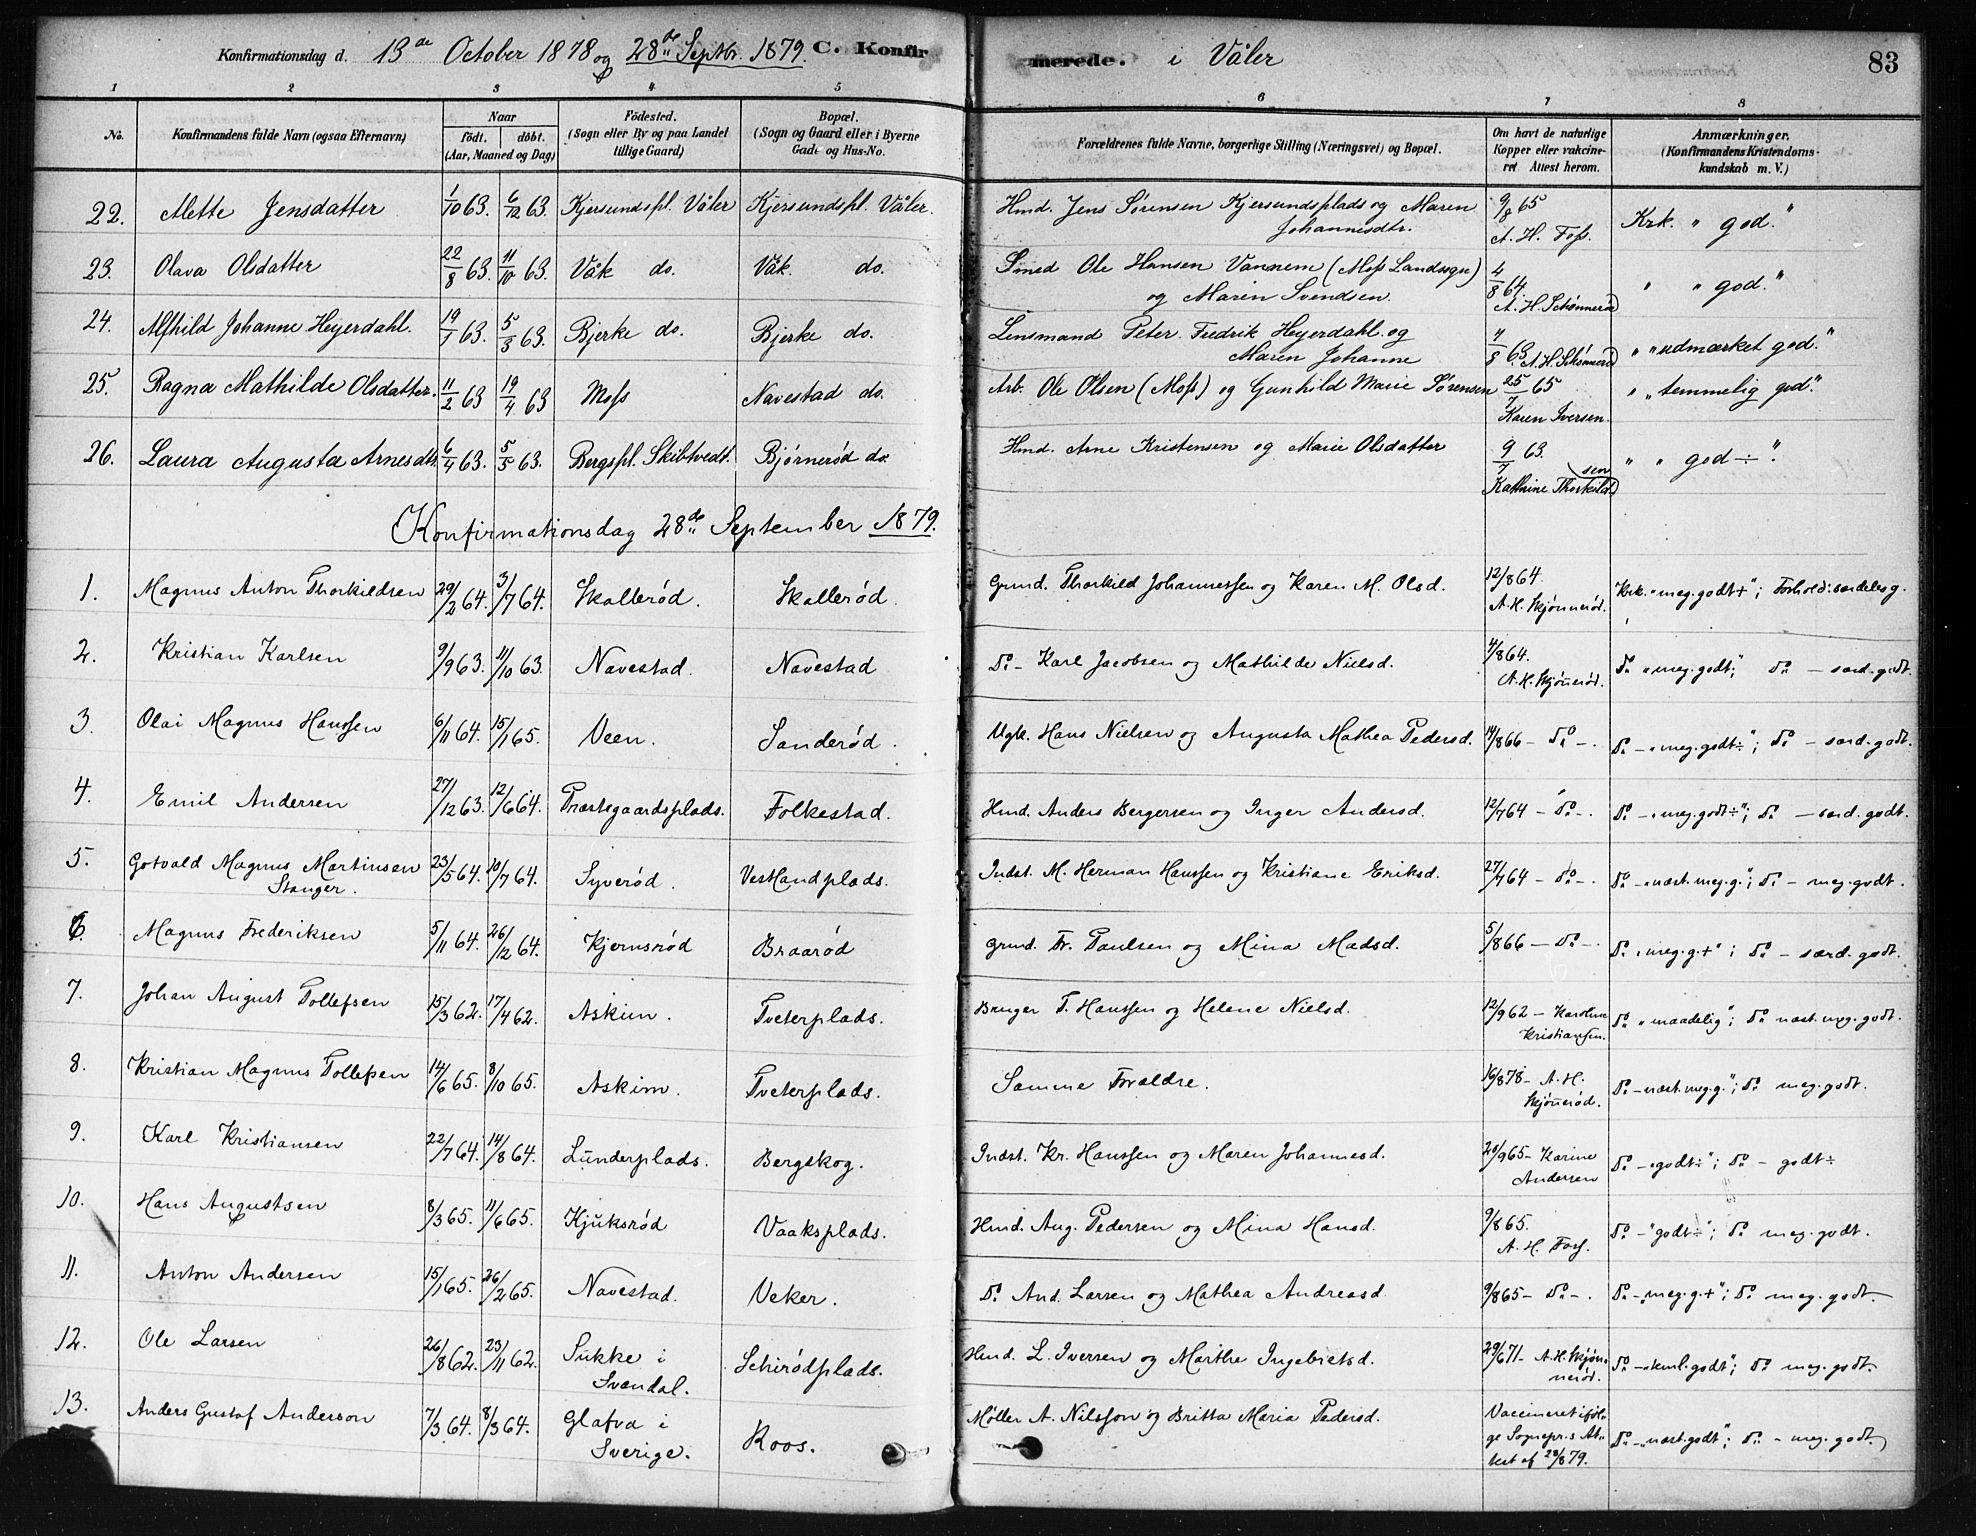 Konfirmationsdag d. 13de October 1878 og 28de Septbr. 1879. C. Konfirmerede. i Våler 83
1 2 3 4 5 6 7 8
No. Konfirmandens fulde Navn (ogsaa Efternavn) Naar födt. döbt. (Aar, Maaned og Dag) Födested. (Sogn eller By og paa Landet tillige Gaard) Bopæl. (Sogn og Gaard eller i Byerne Gade og Hus-No. Forældrenes fulde Navne, borgerlige Stilling (Næringsvei) og Bopæl. Om havt de naturlige Kopper eller vakcineret Attest herom. Anmærkninger. (Konfirmandens Kristendomskundskab m. V.)
22. Mette Jensdatter 1/10 63. 6/12 63. Kjersundspl. Våler Kjersundspl. Våler. Hmd. Jens Sørensen Kjersundsplads og Maren Johannesdtr. 9/8 65 A. H. Foss. Krk. " god. "
23. Olava Olsdatter 22/8 63. 11/10 63. Våk do. Våk. do. Smed Ole Hansen Vannem (Moss Landsogn) og Maren Svendsen. 4/8 64. A. H. Schønnerød " " god. "
24. Alfhild Johanne Heyerdahl. 19/1 63. 5/3 63. Bjerke do. Bjerke do. Lensmand Peter Fredrik Heyerdahl og Maren Johanne 4/8 63. A. H. Schønnerød " " udmærket god. "
25. Ragna Mathilde Olsdatter. 11/2 63 19/4 63 Moss Navestad do. Arb. Ole Olsen (Moss) og Gunhild Marie Sørensen 25/7 65 Karen Iversen. " " temmelig god. "
26. Laura Augusta Arnesdtr. 6/4 63. 5/5 63. Bergspl. Skibtvedt. Bjørnerød do. Hmd. Arne Kristensen og Marie Olsdatter 9/7 63. Kathrine Thorkildsen " " god ÷ ".
Konfirmationsdag 28de September 1879.
1. Magnus Anton Thorkildsen 29/2 64. 3/7 64. Skallerød. Skallerød. Grmd. Thorkild Johannessen og Karen M. Olsd. 12/8 64. A. H. Skjønnerød. Krk. "meg. godt+"; Forhold: særdeles g.
2. Kristian Karlsen 9/9 63. 11/10 63. Navestad. Navestad Do - Karl Jacobsen og Mathilde Nielsd. 4/8 64. A. H. Skjønnerød. Do "meg. godt;" Do - særd. godt.
3. Olai Magnus Hanssen 6/11 64. 15/1 65. Veen. Sanderød. Ugk. Hans Nielsen og Augusta Mathea Pedersd. 14/8 66 - Do -. Do - "meg. godt÷"; Do - særd. godt.
4. Emil Andersen 27/12 63. 12/6 64. Præstegaardsplads. Folkestad. Hmd. Anders Bergersen og Inger Andersd. 12/7 64 - Do -. Do - "meg. godt÷"; Do - særd. godt.
5. Gotvald Magnus Martinsen Stanger. 23/5 64. 10/7 64. Syverød. Vestlandplads. Indst. M. Herman Hanssen og Kristiane Eriksd. 27/7 64 - Do -. Do - "næst. meg. g."; Do - meg. godt.
6. Magnus Frederiksen 5/11 64. 26/12 64. Kjernsrød Braarød Grmd. Fr. Paulsen og Mina Madsd. 5/8 66 - Do -. Do "meg. g.+"; Do - særd. godt.
7. Johan August Tollefsen 15/3 62. 17/4 62. Askim. Tveterplads. Bruger T. Hanssen og Helene Nielsd. 12/9 62 - Karoline Kristiansen. Do "maadelig"; Do næst. meg. godt.
8. Kristian Magnus Tollefsen 14/6 65. 8/10 65. Askim. Tveterplads. Samme Forældre. 16/8 78 - A. H. Skjønnerød. Do - næst. meg. g."; Do meg. godt.
9. Karl Kristiansen 22/7 64. 14/8 64. Lunderplads. Bergskog. Indst. Kr. Hanssen og Maren Johannesd. 20/9 65 - Karine Andersen Do - "godt÷"; Do - godt÷
10. Hans Augustsen 8/3 65. 11/6 65. Kjuksrød Vaaksplads. Hmd. Aug. Pedersen og Mina Hansd. 9/8 65. A. H. Foss. Do - "godt÷"; Do meg. godt.
11. Anton Andersen 15/1 65. 26/2 65. Navestad. Veker. Do And. Larsen og Mathea Andreasd. 9/8 65 - Do -. Do - "meg. g.+"; Do meg. godt.
12. Ole Larsen 26/8 62. 23/11 62. Sukke i Svendal. Schirødplads. Hmd. L. Iversen og Marthe Ingebretsd. 29/6 71 - A. H. Skjønnerød. Do - "teml. godt"; Do meg. godt.
13. Anders Gustaf Anderson 7/3 64. 8/3 64. Glafva i Sverige. Roos. Møller A. Nilsson og Britta Maria Pedersd. Vaccineret ifølge Sognepr.s Attest af 23/8 79. Do - "næst. godt"; Do - meg. godt.